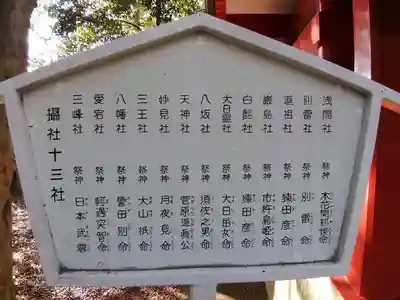 浅間社 祭神 木花開耶姫命
別雷社 祭神 別雷命
道祖社 祭神 猿田彦命
厳島社 祭神 市杵島姫命
白髭社 祭神 猿田彦命
大日霊社 祭神 大日霊女命
八坂社 祭神 須佐之男命
天神社 祭神 菅原道真公
妙見社 祭神 月夜見命
三王社 祭神 大山祇命
八幡社 祭神 誉田別命
愛宕社 祭神 軻遇突智命
三峰社 祭神 日本武尊
攝社十三社